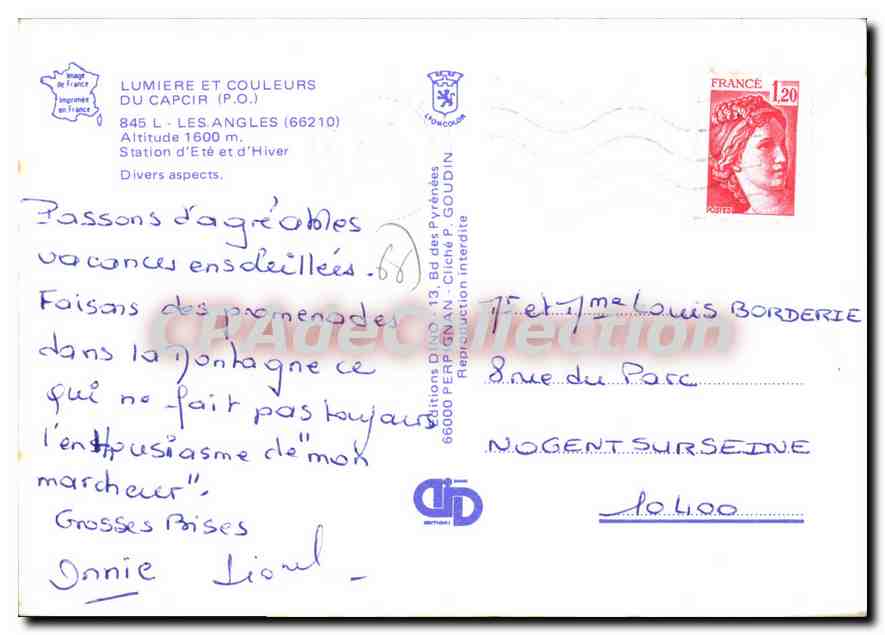 Image
de France
Imprimée
en France
LUMIERE ET COULEURS
DU CAPCIR (P.O.)
845 L - LES ANGLES (66210)
Altitude 1600 m.
Station d'Eté et d'Hiver
Divers aspects.
Passons d'agréables
vacances ensoleillées.
66
Faisons des promenades
dans la montagne ce
qui ne fait pas toujours
l'enthousiasme de "mon
marcheur".
Grosses Bises
Annie Lionel
LYONCOLOR
Editions DINO - 13, Bd des Pyrénées
66000 PERPIGNAN - Cliché P. GOUDIN
Reproduction interdite
EDITIONS
FRANCE 1,20
POSTES
Mr et Mme Louis BORDERIE
8 rue du Parc
NOGENT SUR SEINE
10400
CPAdeCollection